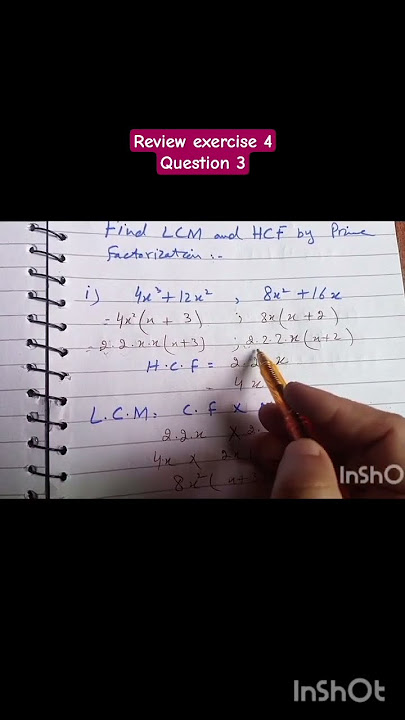 Review exercise 4
Question 3
Find LCM and HCF by Prime
Factorization :-
i) 4x³ + 12x² , 8x² + 16x
= 4x² (x + 3) ; 8x (x + 2)
= 2.2.x.x (x+3) ; 2.2.2.x (x+2)
H.C.F = 2.2.x
= 4x
L.C.M = C.F ×
2.2.x × 2.
4x × 2x
8x² ( x+3
InShO
InShOt